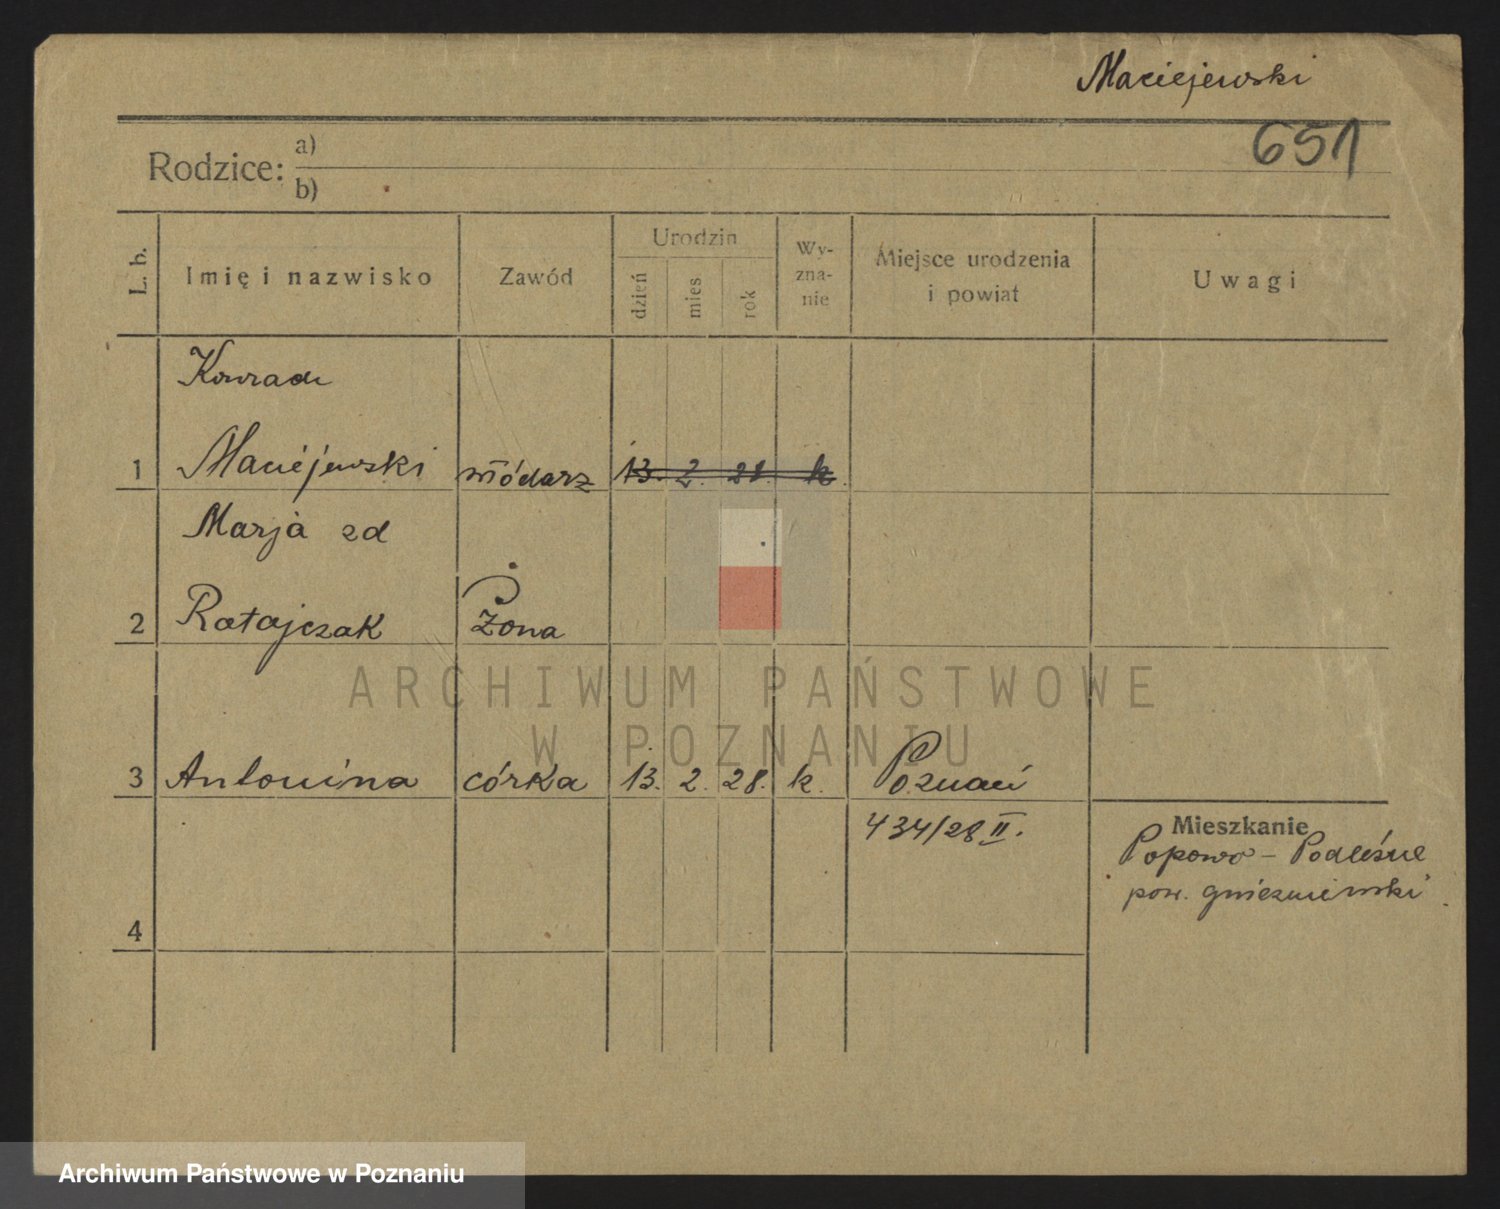 Maciejewski
651
Rodzice: a)
b)
L. b. Imię i nazwisko Zawód Urodzin dzień mies rok Wy-zna-nie Miejsce urodzenia i powiat Uwagi
Konrad
1 Maciejewski włódarz 13. 2. 28. k.
Marja zd
2 Ratajczak żona
3 Antonina córka 13. 2. 28. k. Poznań
434/28 II.
Mieszkanie
Popowo - Podleśne
pow. gnieznieński
4
ARCHIWUM PAŃSTWOWE
W POZNANIU
Archiwum Państwowe w Poznaniu